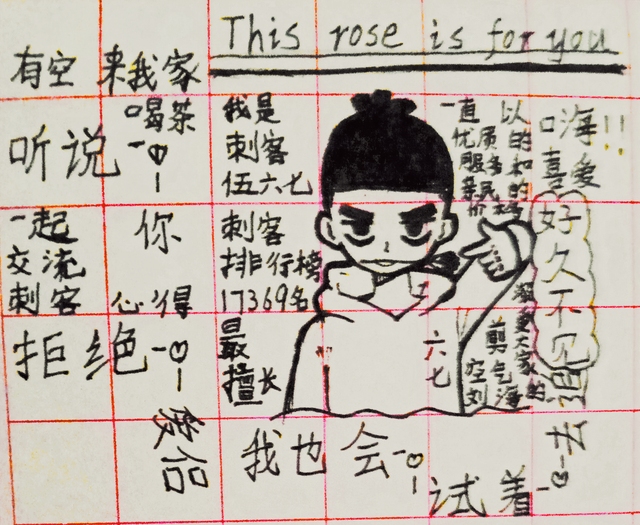 This rose is for you
有空 来我家
喝茶
听说
你
一起
交流
刺客 心得
拒绝
我是
刺客
伍六七
刺客
排行榜
17369名
最
擅长
一直以
优质的
服务和
亲民的
嗨!!
喜爱
好
久
不
见
六
七
剪
空气
刘海
我也会
试着
去